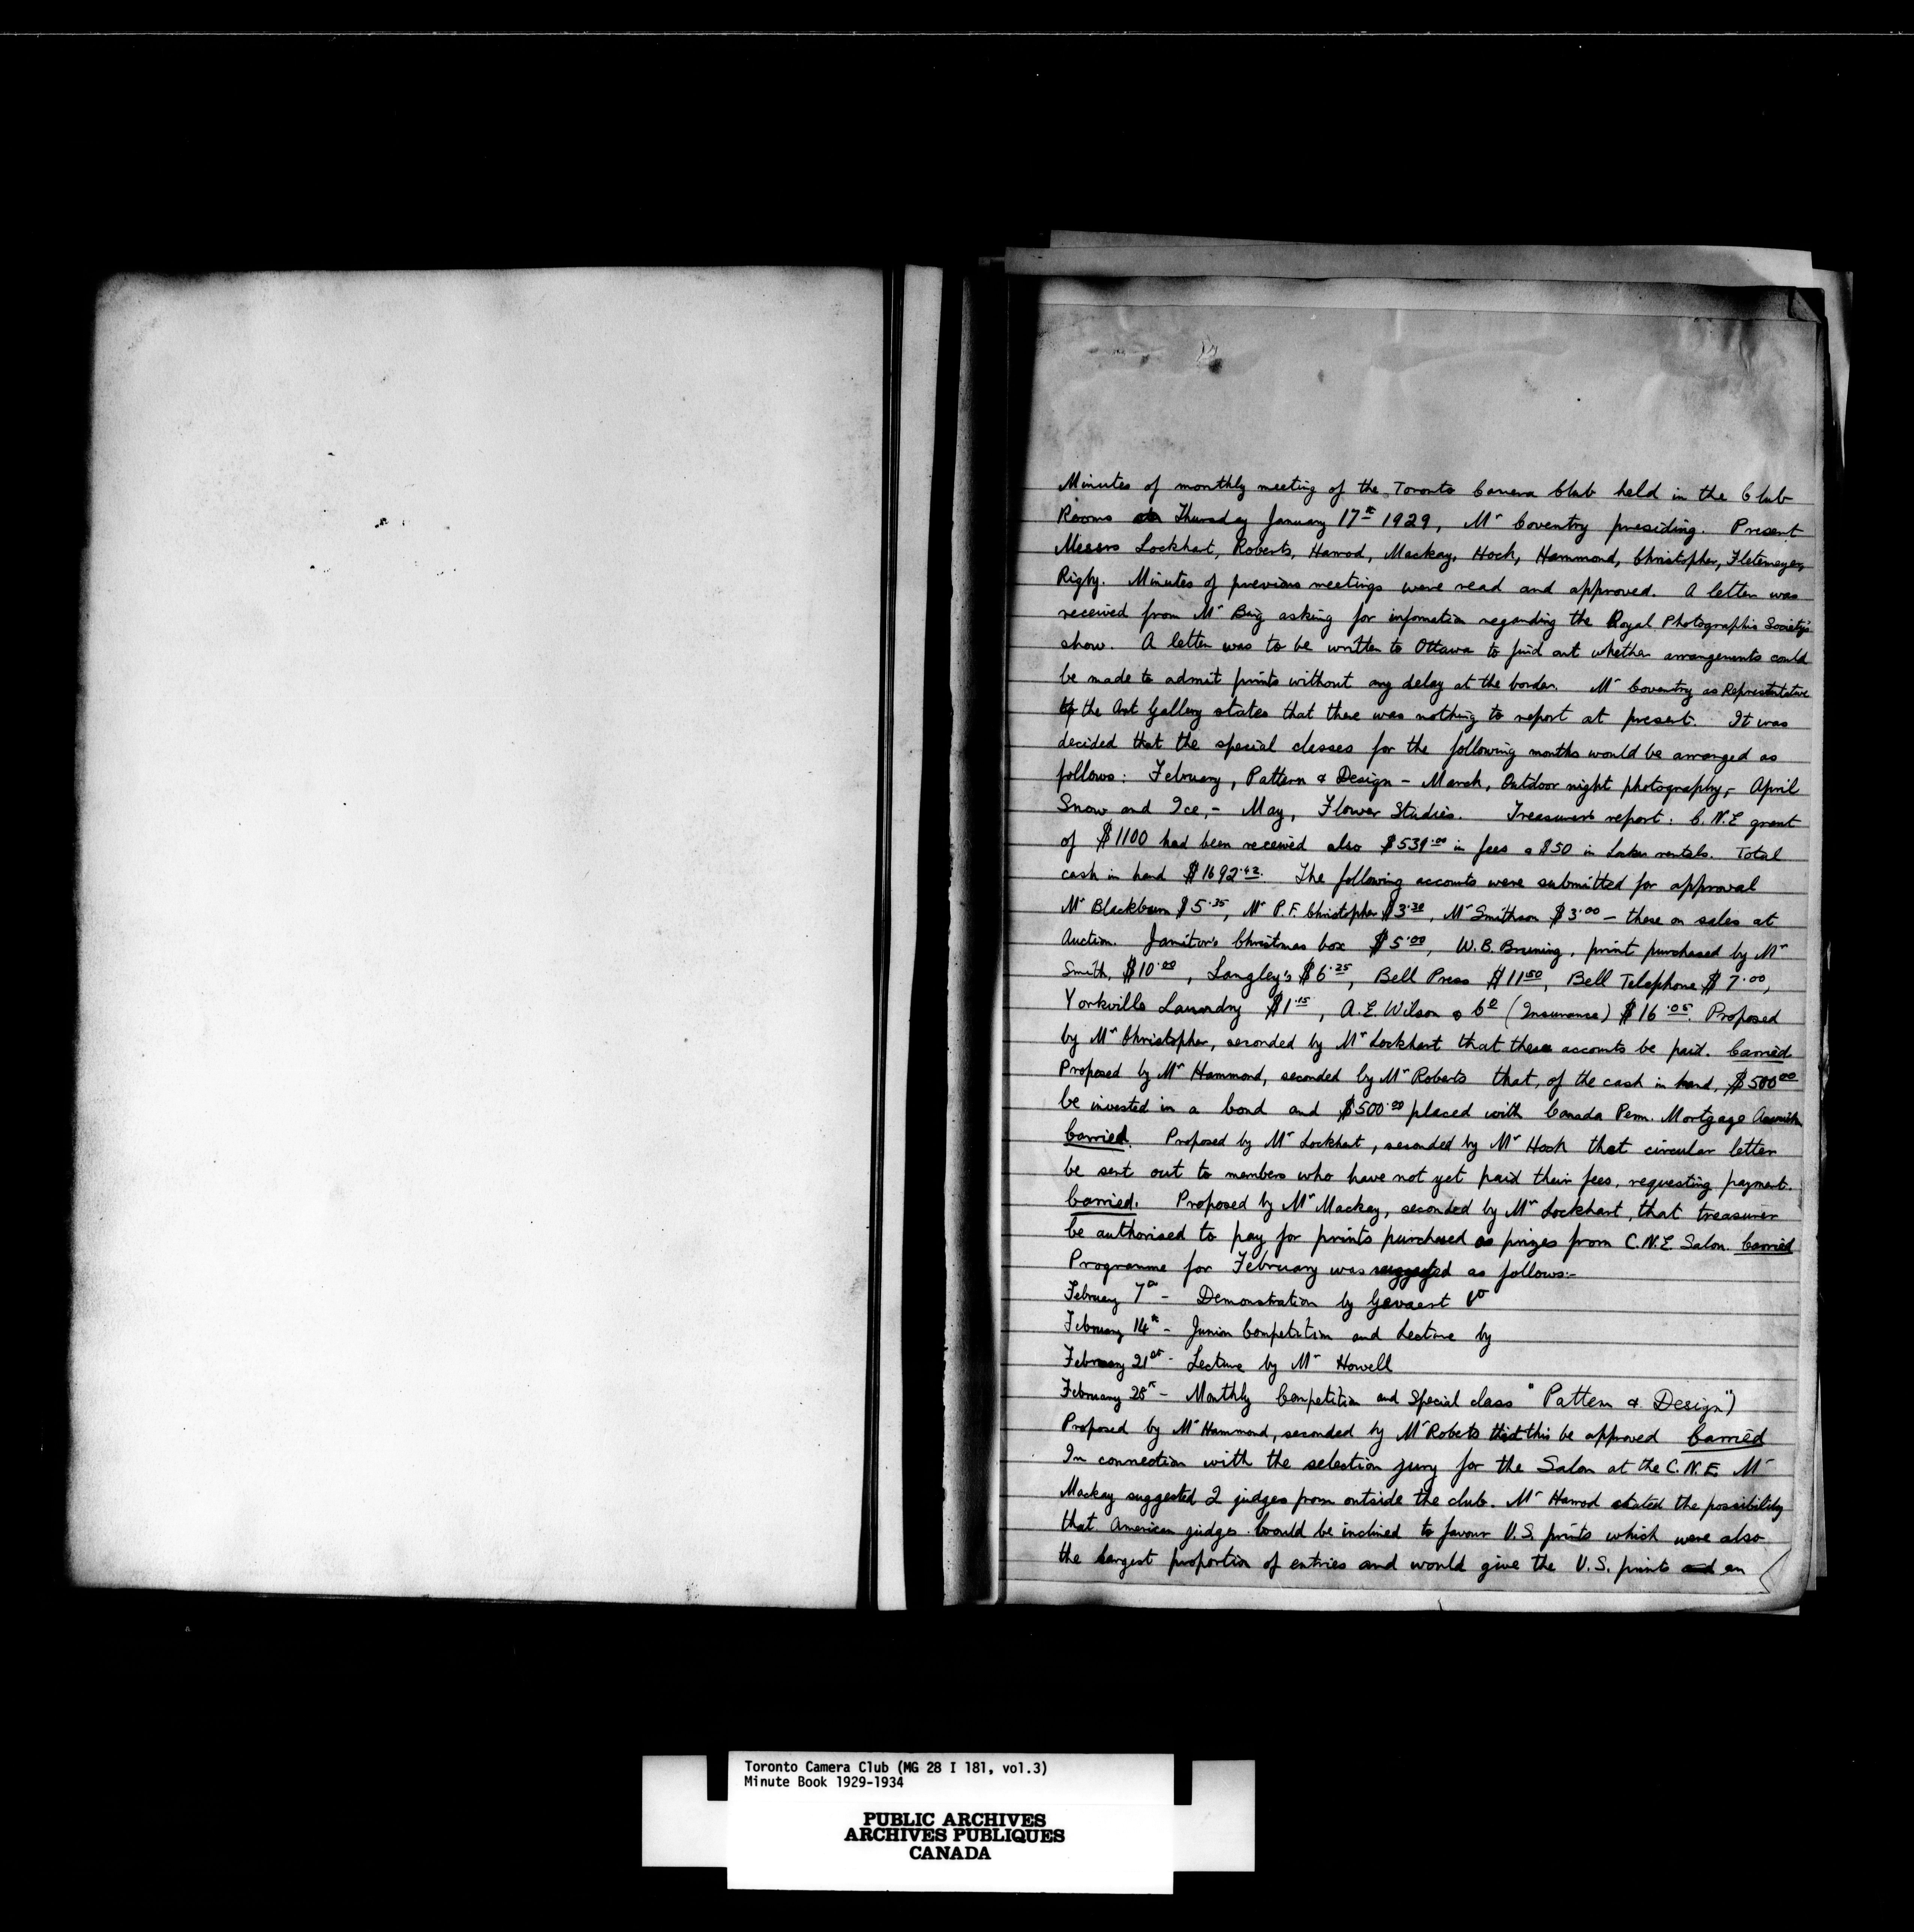 Minutes of monthly meeting of the Toronto Camera Club held in the Club
Rooms on Thursday January 17th 1929, Mr Coventry presiding. Present
Messrs Lockhart, Roberts, Harrod, Mackay, Hoch, Hammond, Christopher, Fletemeyer,
Rigby. Minutes of previous meetings were read and approved. A letter was
received from Mr asking for information regarding the Royal Photographic Society's
show. A letter was to be written to Ottawa to find out whether arrangements could
be made to admit prints without any delay at the border. Mr Coventry as Representative
to the Art Gallery states that there was nothing to report at present. It was
decided that the special classes for the following months would be arranged as
follows: February, Pattern & Design - March, Outdoor night photography, - April
Snow and Ice, - May, Flower Studies. Treasurers report: C.N.E grant
of $1100 had been received also $539.00 in fees & $50 in Locker rentals. Total
cash in hand $1692.42. The following accounts were submitted for approval
Mr Blackburn $5.35, Mr P.F. Christopher $3.30, Mr Smithson $3.00 - these on sales at
Auction. Janitor's Christmas box $5.00, W.B. Bruning, print purchased by Mr
Smith, $10.00, Langley's $6.25, Bell Press $11.50, Bell Telephone $7.00,
Yorkville Laundry $1.15, A.E. Wilson & Co (Insurance) $16.05. Proposed
by Mr Christopher, seconded by Mr Lockhart that these accounts be paid. Carried
Proposed by Mr Hammond, seconded by Mr Roberts that, of the cash in hand, $500.00
be invested in a bond and $500.00 placed with Canada Perm. Mortgage
Carried. Proposed by Mr Lockhart, seconded by Mr Hoch that circular letter
be sent out to members who have not yet paid their fees, requesting payment.
Carried. Proposed by Mr Mackay, seconded by Mr Lockhart, that treasurer
be authorised to pay for prints purchased as prizes from C.N.E. Salon. Carried
Programme for February was suggested as follows:-
February 7th - Demonstration by Gevaert Co
February 14th - Junior Competition and Lecture by
February 21st - Lecture by Mr Howell
February 28th - Monthly Competition and Special class "Pattern & Design")
Proposed by Mr Hammond, seconded by Mr Roberts that this be approved Carried
In connection with the selection jury for the Salon at the C.N.E. Mr
Mackay suggested 2 judges from outside the club. Mr Harrod stated the possibility
that American judges would be inclined to favour U.S. prints which were also
the largest proportion of entries and would give the U.S. prints an
Toronto Camera Club (MG 28 I 181, vol.3)
Minute Book 1929-1934
PUBLIC ARCHIVES
ARCHIVES PUBLIQUES
CANADA